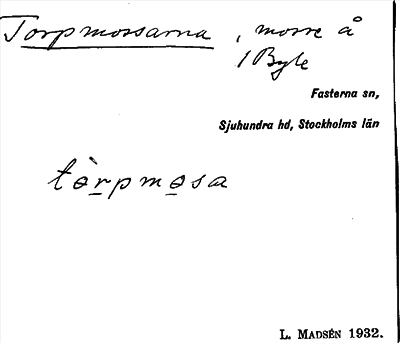 Torpmossarna, mosse å
/Byle
Fasterna sn,
Sjuhundra hd, Stockholms län
tòrpmosa
L. MADSÉN 1932.